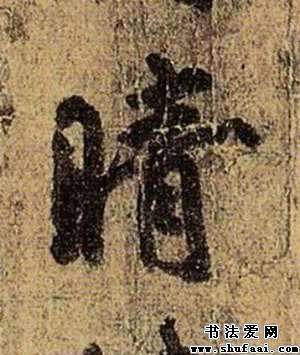 晴
书法爱网
www.shufaai.com